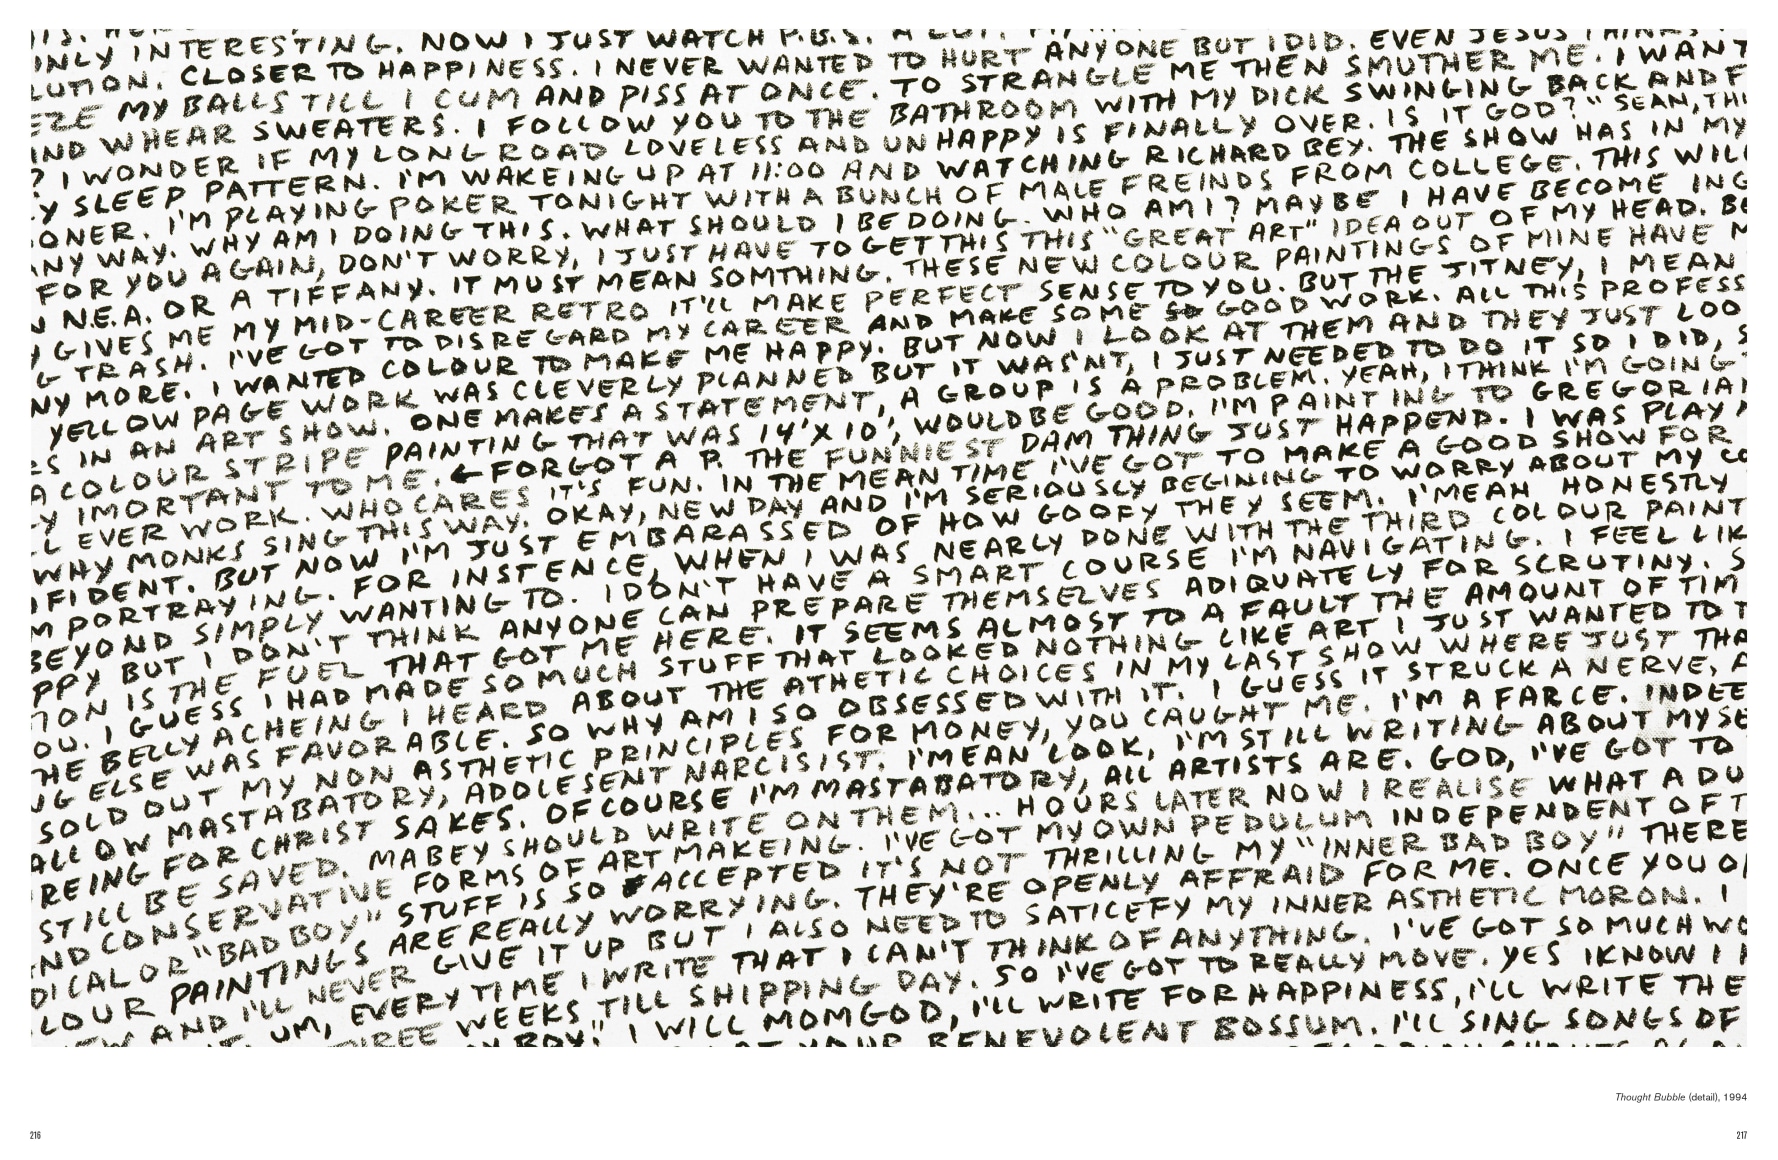 INLY INTERESTING. NOW I JUST WATCH P.B.S. A LOT.
LUTION. CLOSER TO HAPPINESS. I NEVER WANTED TO HURT ANYONE BUT I DID. EVEN JESUS THINKS
EZE MY BALLS TILL I CUM AND PISS AT ONCE. TO STRANGLE ME THEN SMUTHER ME. I WANT
IND WHEAR SWEATERS. I FOLLOW YOU TO THE BATHROOM WITH MY DICK SWINGING BACK AND F
? I WONDER IF MY LONG ROAD LOVELESS AND UNHAPPY IS FINALLY OVER. IS IT GOD?" SEAN, THI
Y SLEEP PATTERN. I'M WAKEING UP AT 11:00 AND WATCHING RICHARD BEY. THE SHOW HAS IN MY
ONER. I'M PLAYING POKER TONIGHT WITH A BUNCH OF MALE FREINDS FROM COLLEGE. THIS WILL
ANY WAY. WHY AM I DOING THIS. WHAT SHOULD I BE DOING. WHO AM I? MAYBE I HAVE BECOME ING
FOR YOU AGAIN, DON'T WORRY, I JUST HAVE TO GET THIS THIS "GREAT ART" IDEA OUT OF MY HEAD. BE
N N.E.A. OR A TIFFANY. IT MUST MEAN SOMTHING. THESE NEW COLOUR PAINTINGS OF MINE HAVE M
Y GIVES ME MY MID-CAREER RETRO IT'LL MAKE PERFECT SENSE TO YOU. BUT THE JITNEY, I MEAN
G TRASH. I'VE GOT TO DISREGARD MY CAREER AND MAKE SOME GOOD WORK. ALL THIS PROFESS
NY MORE. I WANTED COLOUR TO MAKE ME HAPPY. BUT NOW I LOOK AT THEM AND THEY JUST LOO
YELLOW PAGE WORK WAS CLEVERLY PLANNED BUT IT WAS'NT, I JUST NEEDED TO DO IT SO I DID, S
RS IN AN ART SHOW. ONE MAKES A STATEMENT, A GROUP IS A PROBLEM. YEAH, I THINK I'M GOING
A COLOUR STRIPE PAINTING THAT WAS 14'X10', WOULD BE GOOD. I'M PAINTING TO GREGORIAN
Y IMORTANT TO ME. ←FORGOT A P. THE FUNNIEST DAM THING JUST HAPPEND. I WAS PLAY
LL EVER WORK. WHO CARES IT'S FUN. IN THE MEAN TIME I'VE GOT TO MAKE A GOOD SHOW FOR
WHY MONKS SING THIS WAY. OKAY, NEW DAY AND I'M SERIOUSLY BEGINING TO WORRY ABOUT MY CO
NFIDENT. BUT NOW I'M JUST EMBARASSED OF HOW GOOFY THEY SEEM. I'MEAN HONESTLY
M PORTRAYING. FOR INSTENCE, WHEN I WAS NEARLY DONE WITH THE THIRD COLOUR PAINT
BEYOND SIMPLY WANTING TO. I DON'T HAVE A SMART COURSE I'M NAVIGATING. I FEEL LIK
PPY BUT I DON'T THINK ANYONE CAN PREPARE THEMSELVES ADIQUATELY FOR SCRUTINY. S
ION IS THE FUEL THAT GOT ME HERE. IT SEEMS ALMOST TO A FAULT THE AMOUNT OF TIM
OU. I GUESS I HAD MADE SO MUCH STUFF THAT LOOKED NOTHING LIKE ART I JUST WANTED TO T
HE BELLY ACHEING I HEARD ABOUT THE ATHETIC CHOICES IN MY LAST SHOW WHERE JUST THA
NG ELSE WAS FAVORABLE. SO WHY AM I SO OBSESSED WITH IT. I GUESS IT STRUCK A NERVE, A
SOLD OUT MY NON ASTHETIC PRINCIPLES FOR MONEY, YOU CAUGHT ME. I'M A FARCE. INDEE
ALLOW MASTABATORY, ADOLESENT NARCISIST. I'MEAN LOOK, I'M STILL WRITING ABOUT MYSE
REING FOR CHRIST SAKES. OF COURSE I'M MASTABATORY, ALL ARTISTS ARE. GOD, I'VE GOT TO
STILL BE SAVED. MABEY SHOULD WRITE ON THEM... HOURS LATER NOW I REALISE WHAT A DU
ND CONSERVATIVE FORMS OF ART MAKEING. I'VE GOT MY OWN PEDULUM INDEPENDENT OF T
DICAL OR "BAD BOY" STUFF IS SO ACCEPTED IT'S NOT THRILLING MY "INNER BAD BOY" THERE
LOUR PAINTINGS ARE REALLY WORRYING. THEY'RE OPENLY AFFRAID FOR ME. ONCE YOU O
EW AND I'LL NEVER GIVE IT UP BUT I ALSO NEED TO SATICEFY MY INNER ASTHETIC MORON. I
UM, EVERY TIME I WRITE THAT I CAN'T THINK OF ANYTHING. I'VE GOT SO MUCH WO
THREE WEEKS TILL SHIPPING DAY. SO I'VE GOT TO REALLY MOVE. YES I KNOW I
Y BOY." I WILL MOMGOD, I'LL WRITE FOR HAPPINESS, I'LL WRITE THE
AT YOUR BENEVOLENT BOSSUM. I'LL SING SONGS OF
Thought Bubble (detail), 1994
216
217